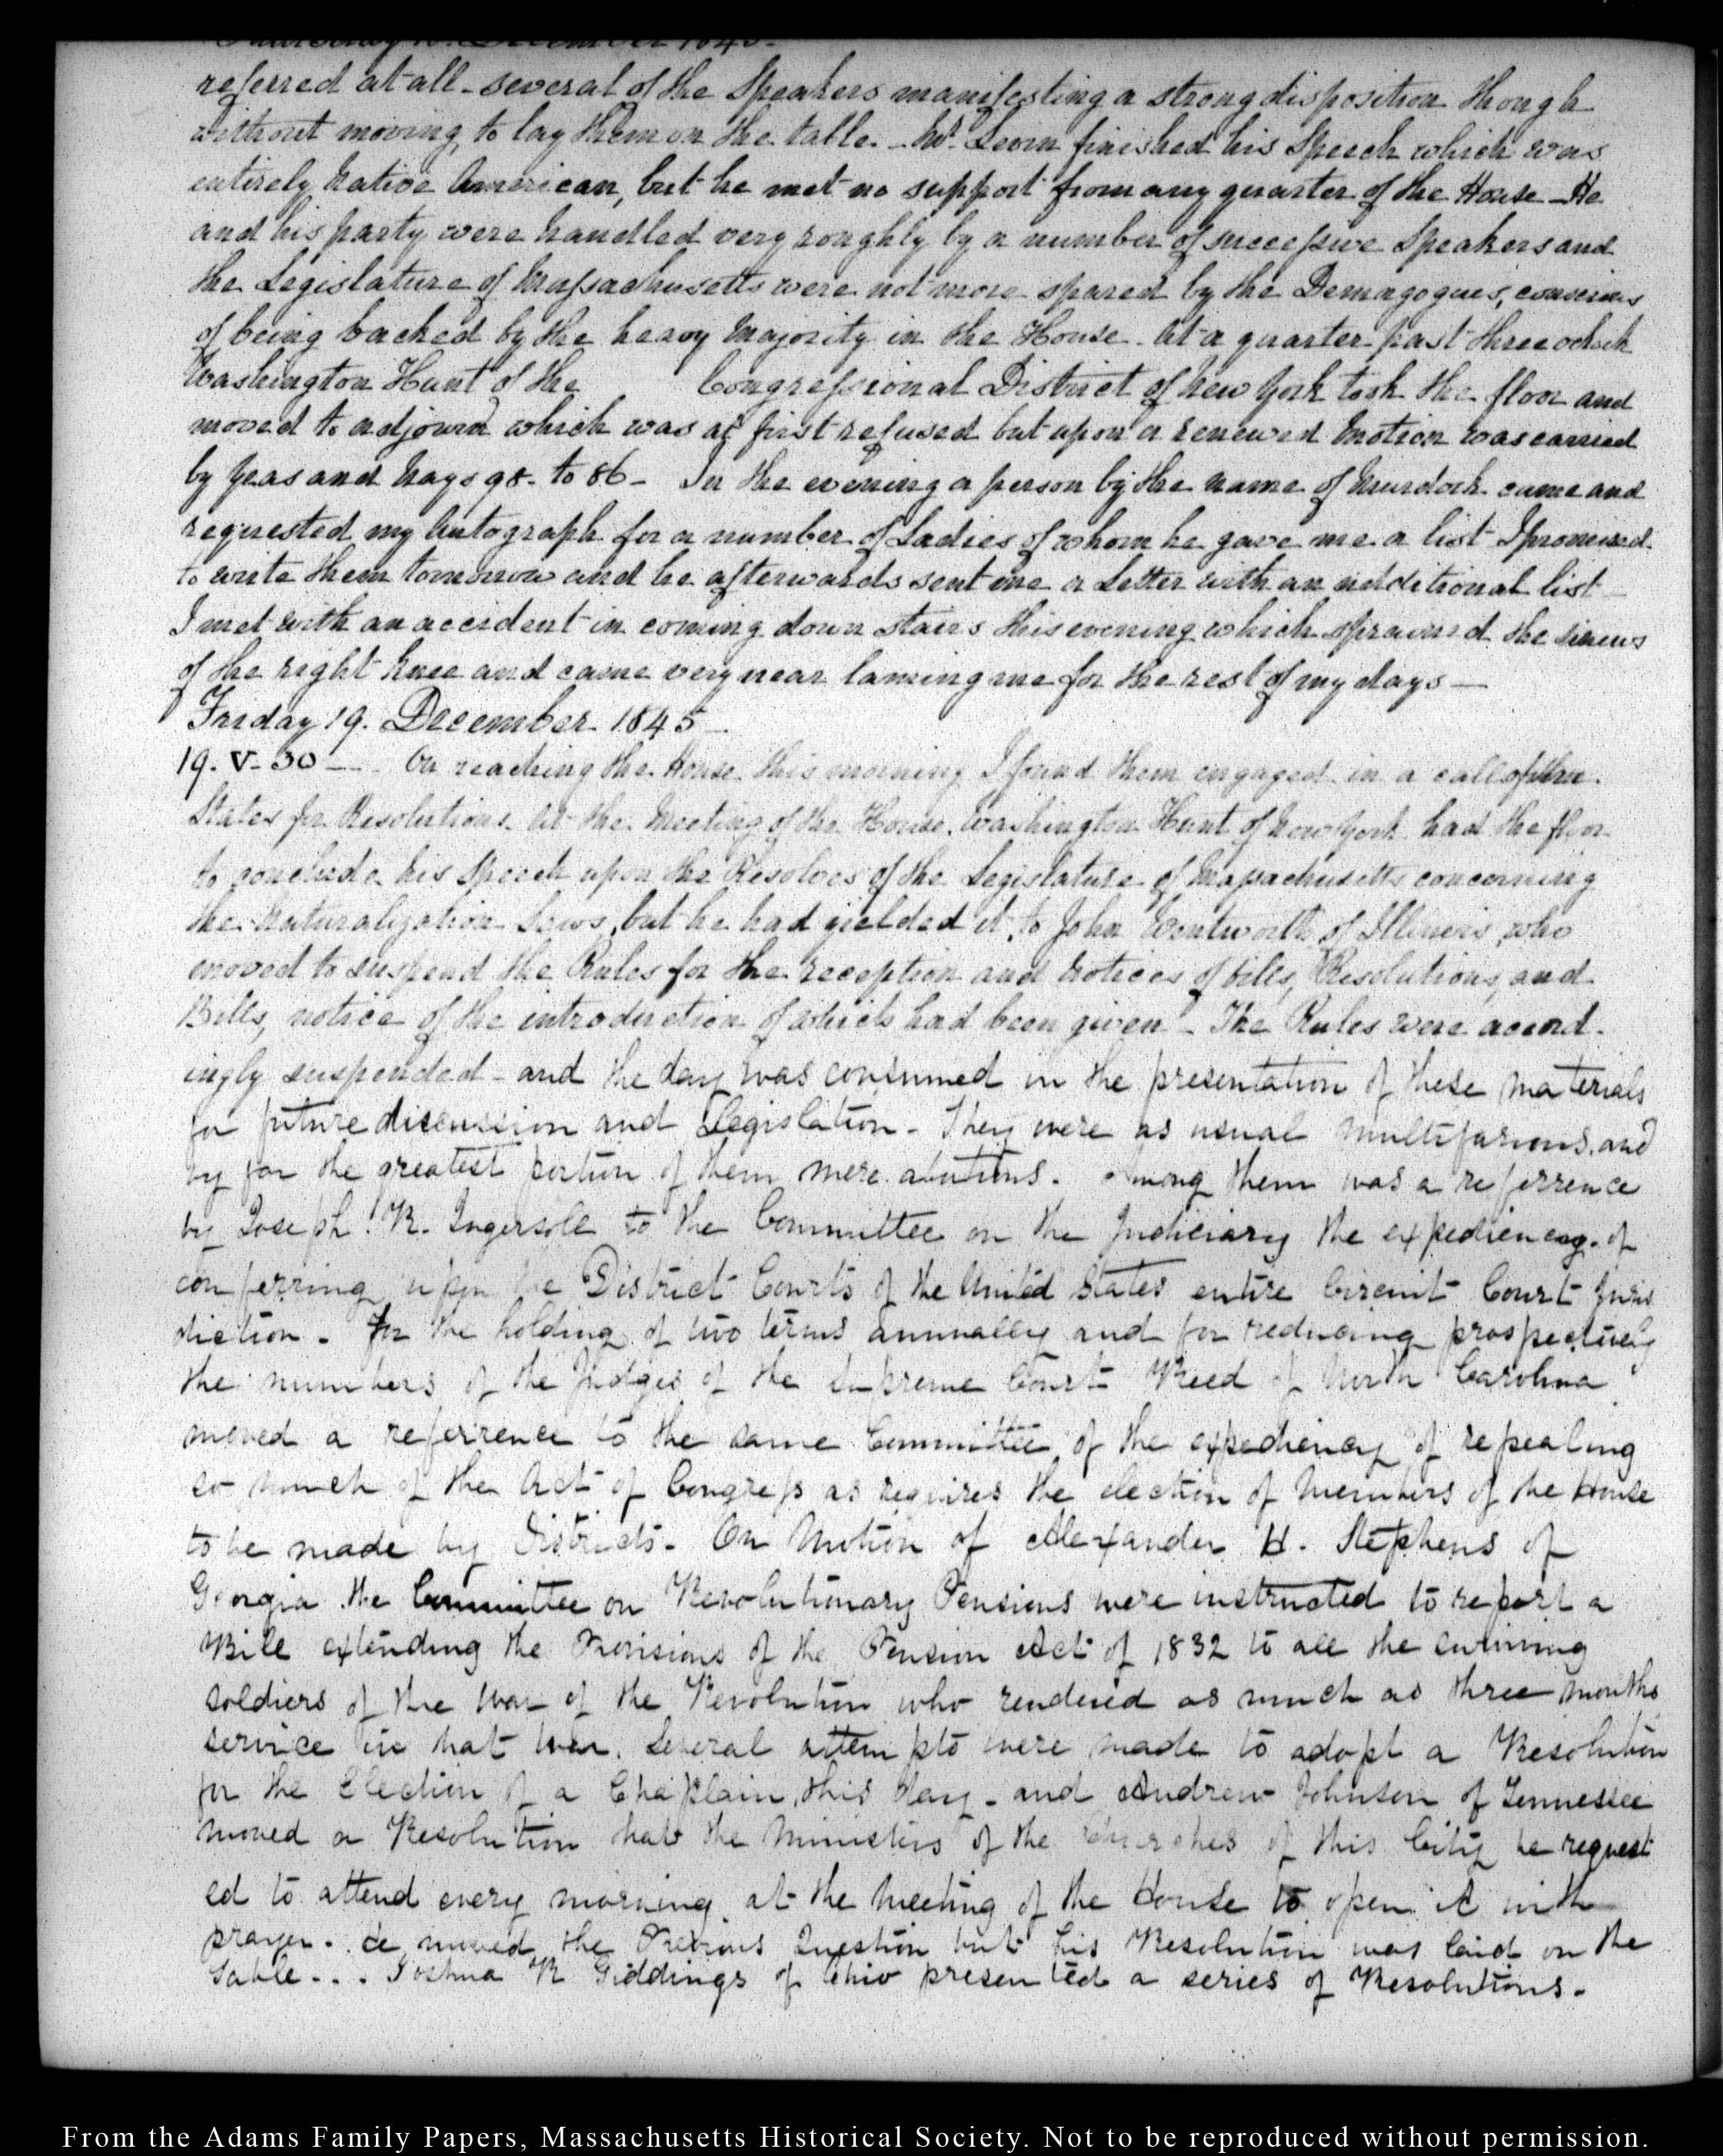 referred at all - several of the Speakers manifesting a strong disposition though
without moving, to lay them on the table. - Mr. Levin finished his Speech which was
entirely Native American, but he met no support from any quarter of the House - He
and his party were handled very roughly by a number of successive Speakers and
the Legislature of Massachusetts were not more spared by the Demagogues, conscious
of being backed by the heavy Majority in the House. At a quarter past three oclock
Washington Hunt of the Congressional District of New York took the floor and
moved to adjourn which was at first refused but upon a renewed Motion was carried
by Yeas and Nays 98. to 86 - In the evening a person by the name of Murdock came and
requested my Autograph for a number of Ladies of whom he gave me a list I promised.
to write them tomorrow and he afterwards sent me a Letter with an additional list -
I met with an accident in coming down stairs this evening which sprained the sinews
of the right knee and came very near laming me for the rest of my days -
Friday 19. December 1845 -
19. V. 30 - On reaching the House this morning I found them engaged in a call of the
States for Resolutions. At the Meeting of the House, Washington Hunt of New York had the floor
to conclude his Speech upon the Resolves of the Legislature of Massachusetts concerning
the Naturalization Laws, but he had yielded it to John Wentworth of Illinois, who
moved to suspend the Rules for the reception and notices of bills, Resolutions, and
Bills, notice of the introduction of which had been given - The Rules were accord-
ingly suspended - and the day was consumed in the presentation of these materials
for future discussion and Legislation - They were as usual multifarious, and
by far the greatest portion of them mere abortions. Among them was a referrence
by Joseph R. Ingersoll to the Committee on the Judiciary the expediency of
conferring upon the District Courts of the United States entire Circuit Court Juris
diction - For the holding of two terms annually and for reducing prospectively
the numbers of the Judges of the Supreme Court Reed of North Carolina
moved a referrence to the same Committee, of the expediency of repealing
so much of the Act of Congress as requires the election of Members of the House
to be made by Districts. On Motion of Alexander H. Stephens of
Georgia the Committee on Revolutionary Pensions were instructed to report a
Bill extending the Provisions of the Pension Act of 1832 to all the surviving
soldiers of the War of the Revolution who rendered as much as three months
service in that War. Several attempts were made to adopt a Resolution
for the Election of a Chaplain, this day - and Andrew Johnson of Tennessee
moved a Resolution that the Ministers of the Churches of this City be request
ed to attend every morning at the Meeting of the House to open it with
prayer. He moved the Previous Question but his Resolution was laid on the
table. . . Joshua R Giddings of Ohio presented a series of Resolutions.
From the Adams Family Papers, Massachusetts Historical Society. Not to be reproduced without permission.